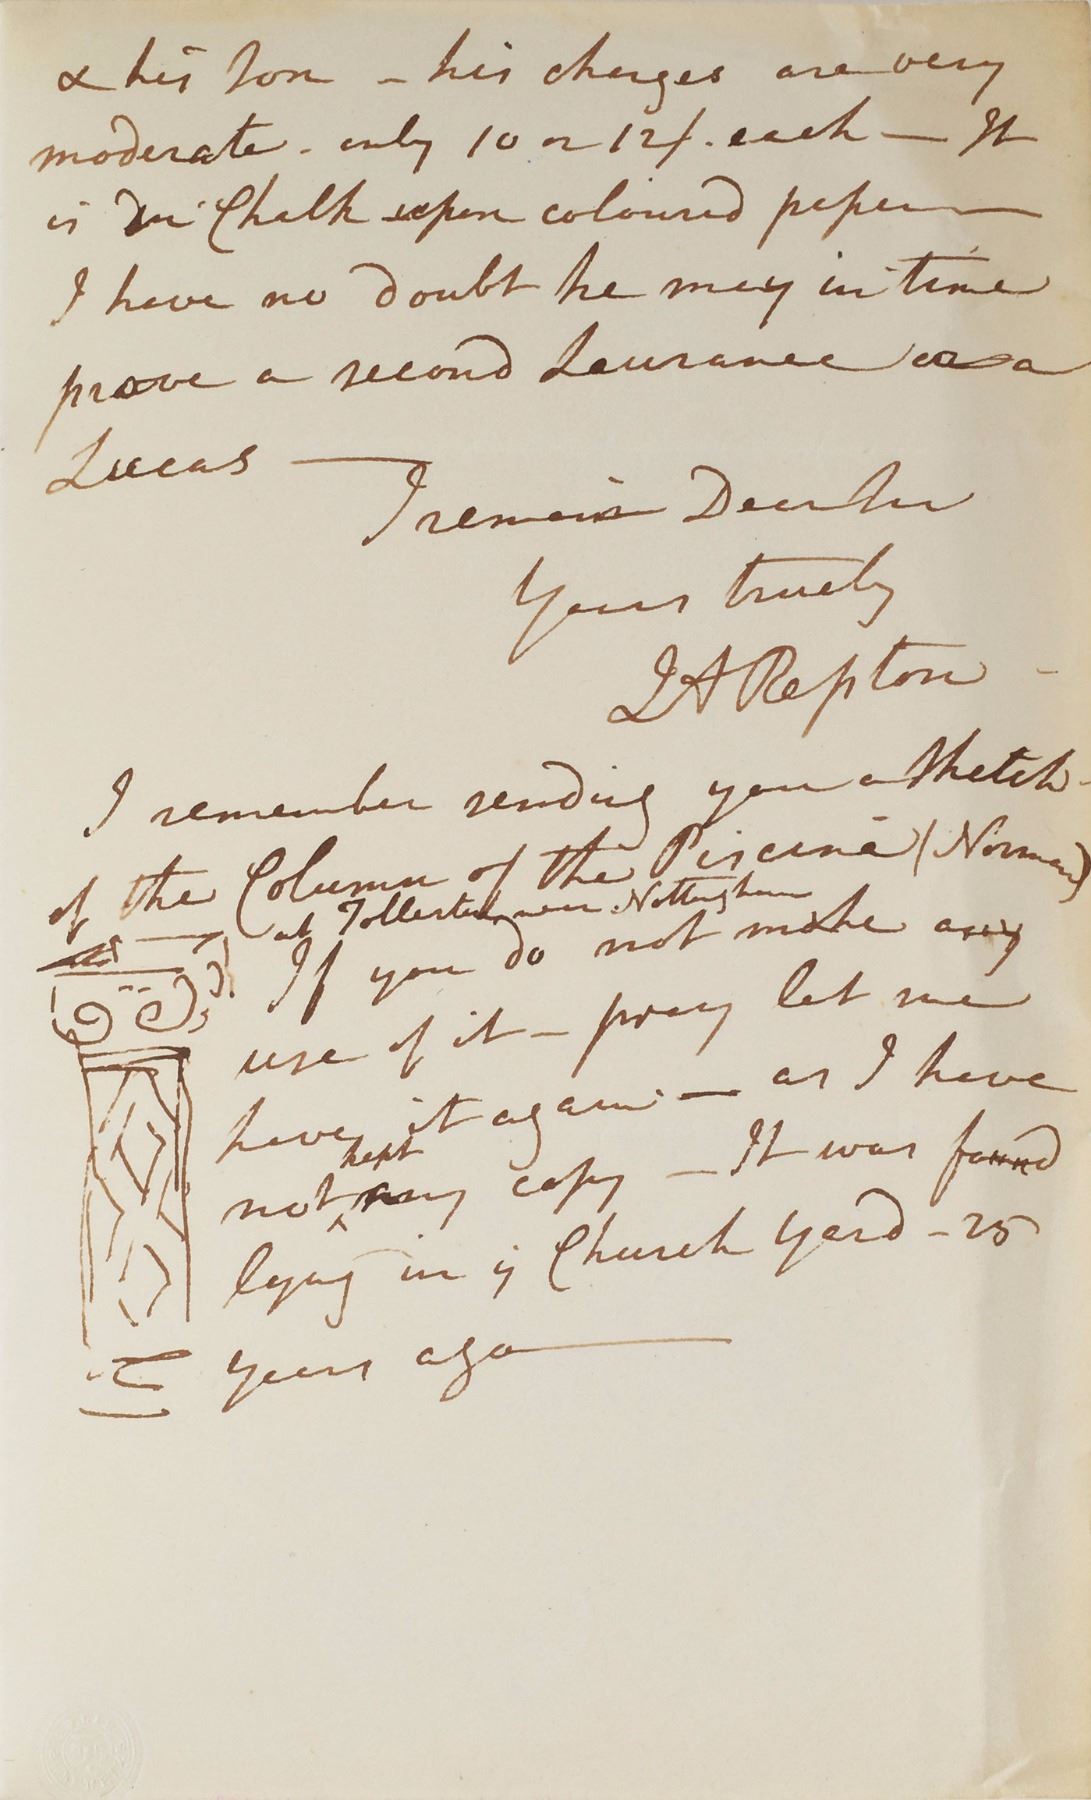 & his son - his charges are very
moderate - only 10 or 12/. each - It
is in Chalk upon coloured paper
I have no doubt he may in time
prove a second Laurance or a
Lucas
I remain Dear Sir
Yours truely
J A Repton
I remember sending you a sketch
of the Column of the Piscina (Norman)
at Tollerton near Nottingham
If you do not make any
use of it - pray let me
have it again - as I have
not kept any copy - It was found
lying in ye Church Yard - 25
Years ago